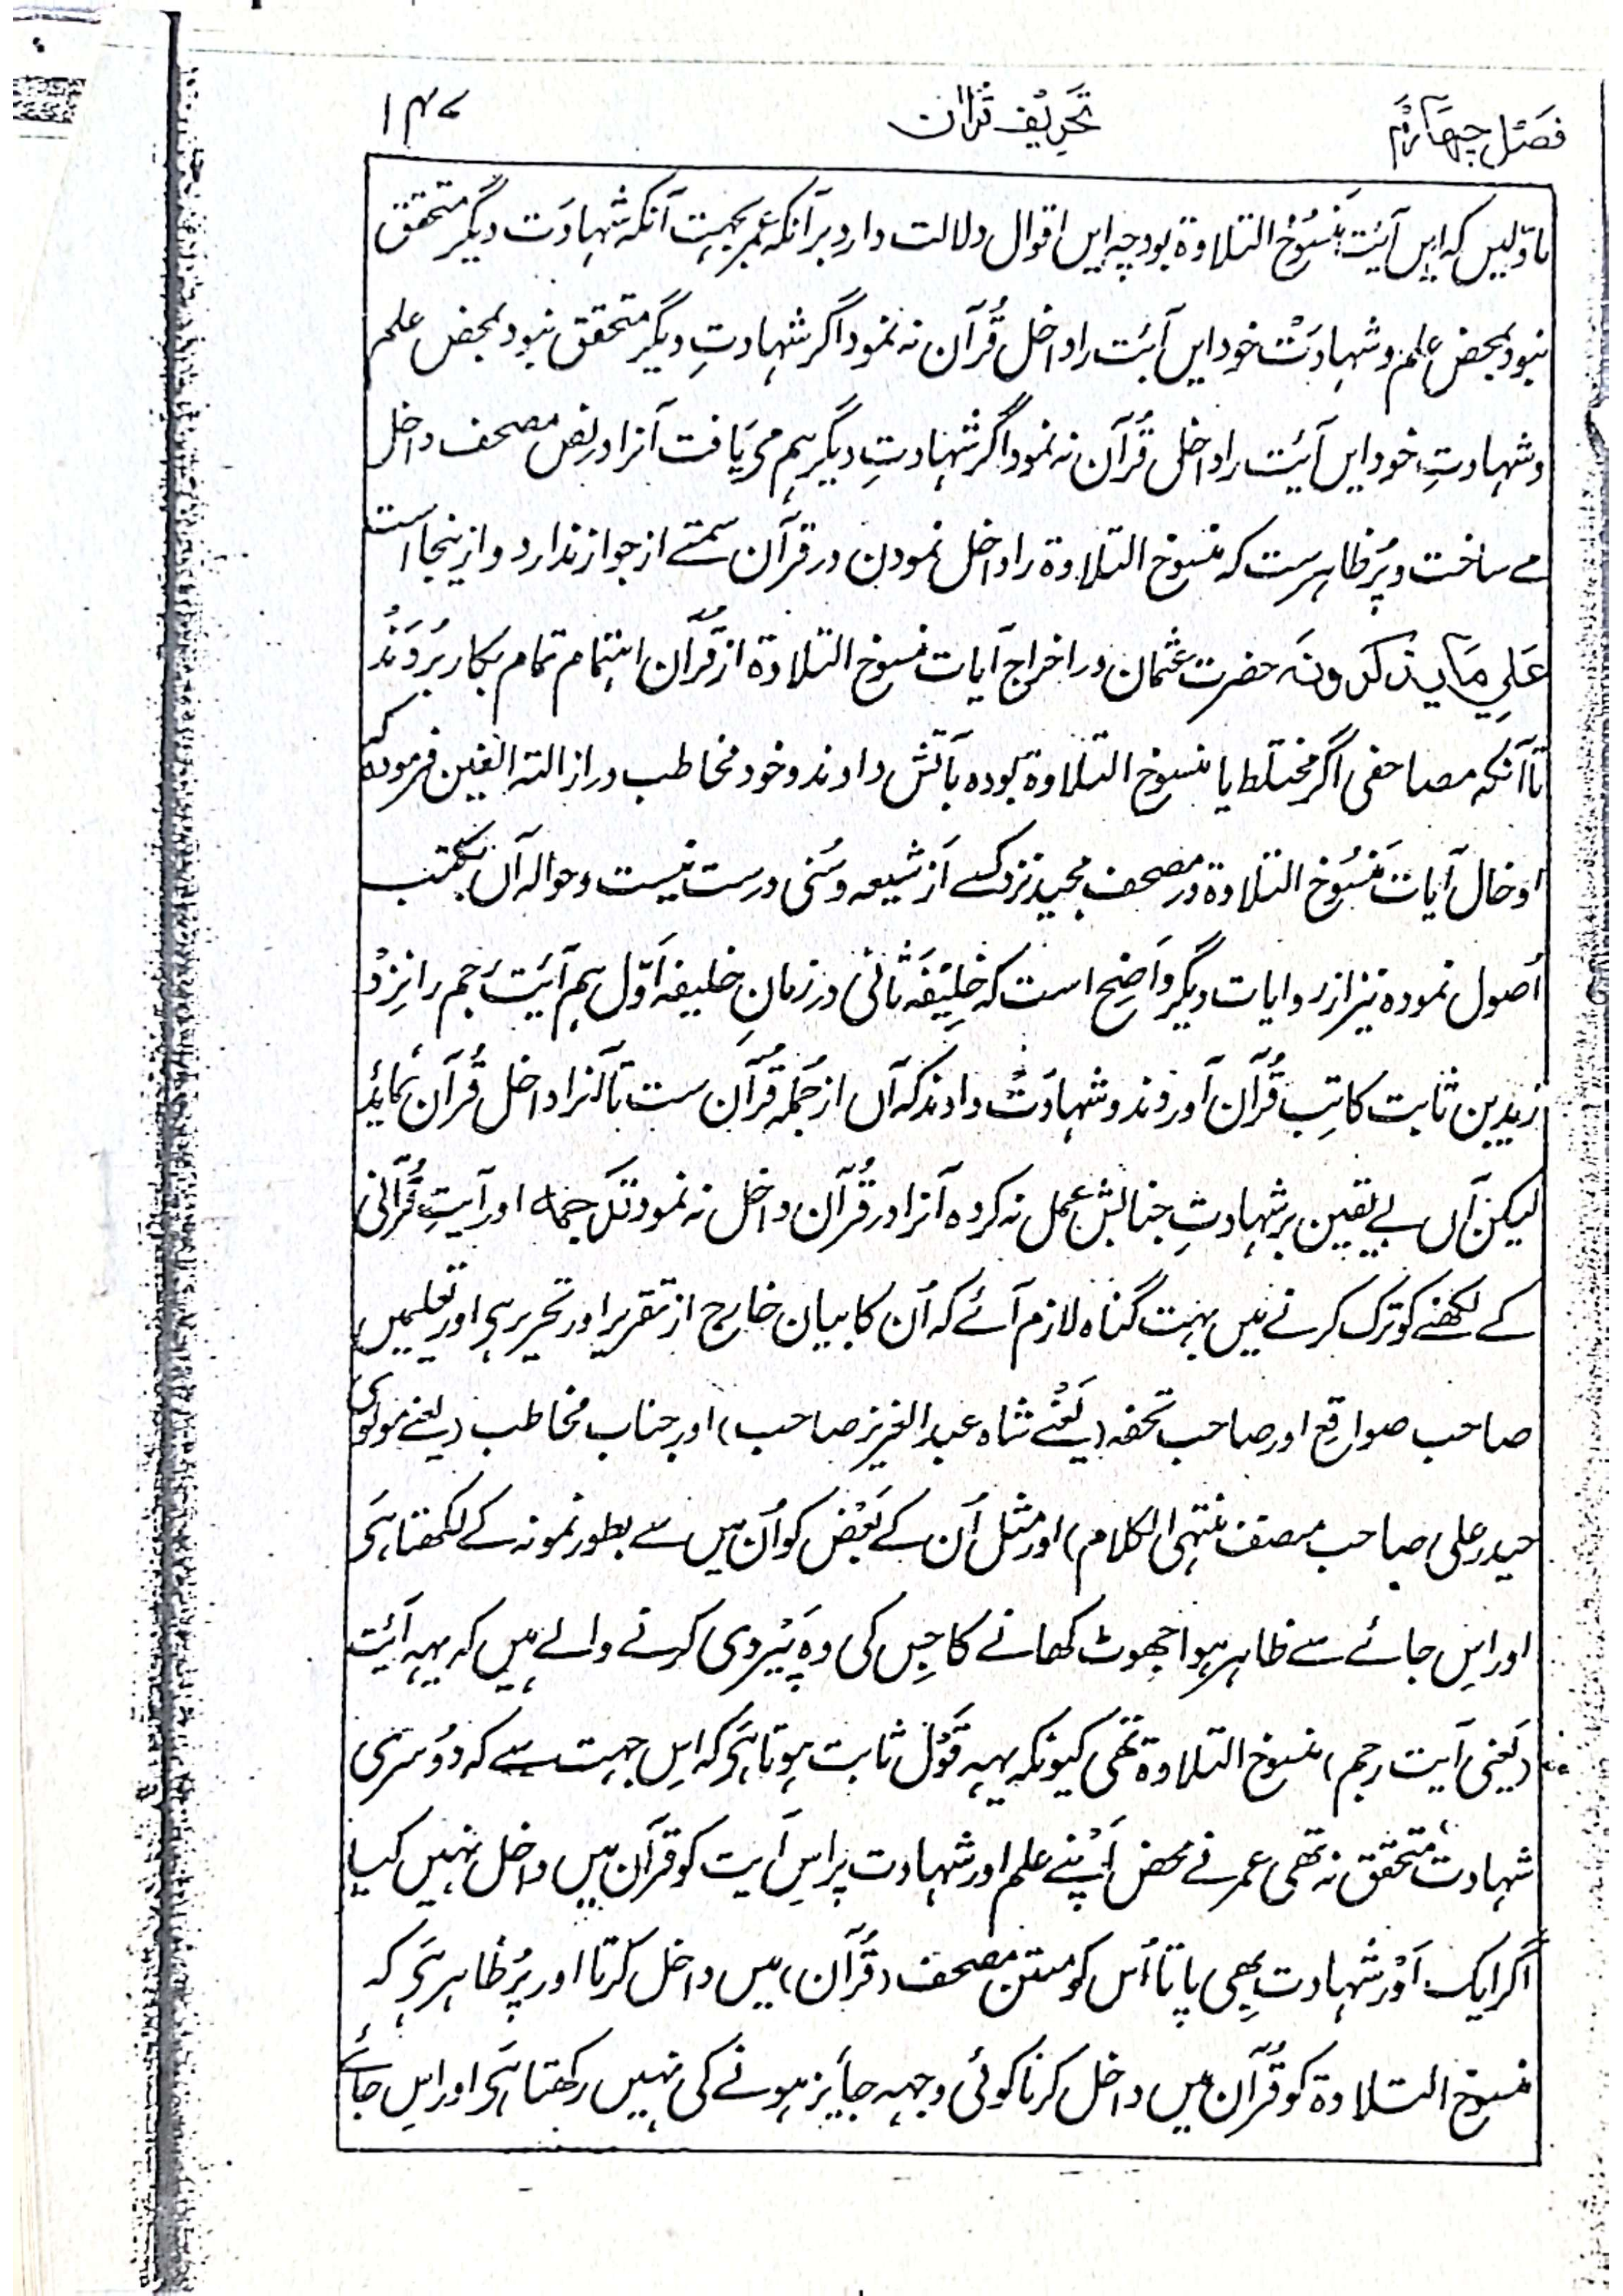 فصل چہارم تحریف قرآن ۱۴۷
ماؤلیں کہ ایں آیت منسوخ التلاوۃ بود چہ ایں اقوال دلالت دارد بر آنکہ عمر بجہت آنکہ شہادت دیگر متحقق
نبود بمحض علم و شہادت خود ایں آیت را داخل قرآن نہ نمود اگر شہادتِ دیگر متحقق نبود بمحض علم
و شہادتِ خود ایں آیت را داخل قرآن نہ نمود اگر شہادتِ دیگر ہم می یافت آنرا در نص مصحف داخل
مے ساخت و پُر ظاہر ست کہ منسوخ التلاوۃ را داخل نمودن در قرآن سمتے از جواز ندارد و ازینجا است
علی ما یذکرونہ حضرت عثمان در اخراج آیات منسوخ التلاوۃ از قرآن اہتمام تمام بکار بُردَند
تا آنکہ مصاحفی اگر مختلط با منسوخ التلاوۃ بودہ بآتش دادند و خود مخاطب در ازالۃ الغین فرمودہ کہ
ادخال آیات منسُوخ التلاوۃ در مصحف مجید نزد کسے از شیعہ و سُنی درست نیست و حوالہ آں بکتب
اُصول نمودہ نیز از روایات دیگر واضح است کہ خلیفہ ثانی در زمانِ خلیفہ اوّل ہم آیت رجم را نزد
زید بن ثابت کاتِب قرآن آوردند و شہادت دادند کہ آں از جملہ قرآن ست تا آنرا داخل قرآن نماید
لیکن آں بے یقین بر شہادتِ جنابش عمل نہ کردہ آنرا در قرآن داخل نہ نمود ترجمہ اور آیتِ قرآنی
کے لکھنے کو ترک کرنے میں بہت گناہ لازم آئے کہ اُن کا بیان خارج از تقریر اور تحریر ہی اور تعلیمیں
صاحب صواقع اور صاحب تحفہ (یعنے شاہ عبدالعزیز صاحب) اور جناب مخاطب (یعنے مولوی
حیدر علی صاحب مصنف منتہی الکلام) اور مثل اُن کے بعض کو اُن میں سے بطور نمونہ کے لکھتا ہَی
اور اِس جائے سے ظاہر ہوا جھوٹ کھانے کا جِس کی وہ پَیروی کرنے والے ہیں کہ یہہ آیت
(یعنی آیت رجم) منسوخ التلاوۃ تھی کیونکہ یہہ قول ثابت ہوتا ہَی کہ اِس جہت سے کہ دُوسری
شہادت متحقق نہ تھی عمر نے محض اَپنے علم اور شہادت پر اِس آیت کو قرآن میں داخل نہیں کیا
اگر ایک اَوْر شہادت بھی پاتا اُس کو متن مصحف (قرآن) میں داخل کرتا اور پُر ظاہر ہَی کہ
منسوخ التلاوۃ کو قرآن میں داخل کرنا کوئی وجہہ جایز ہونے کی نہیں رکھتا ہَی اور اِس جائے